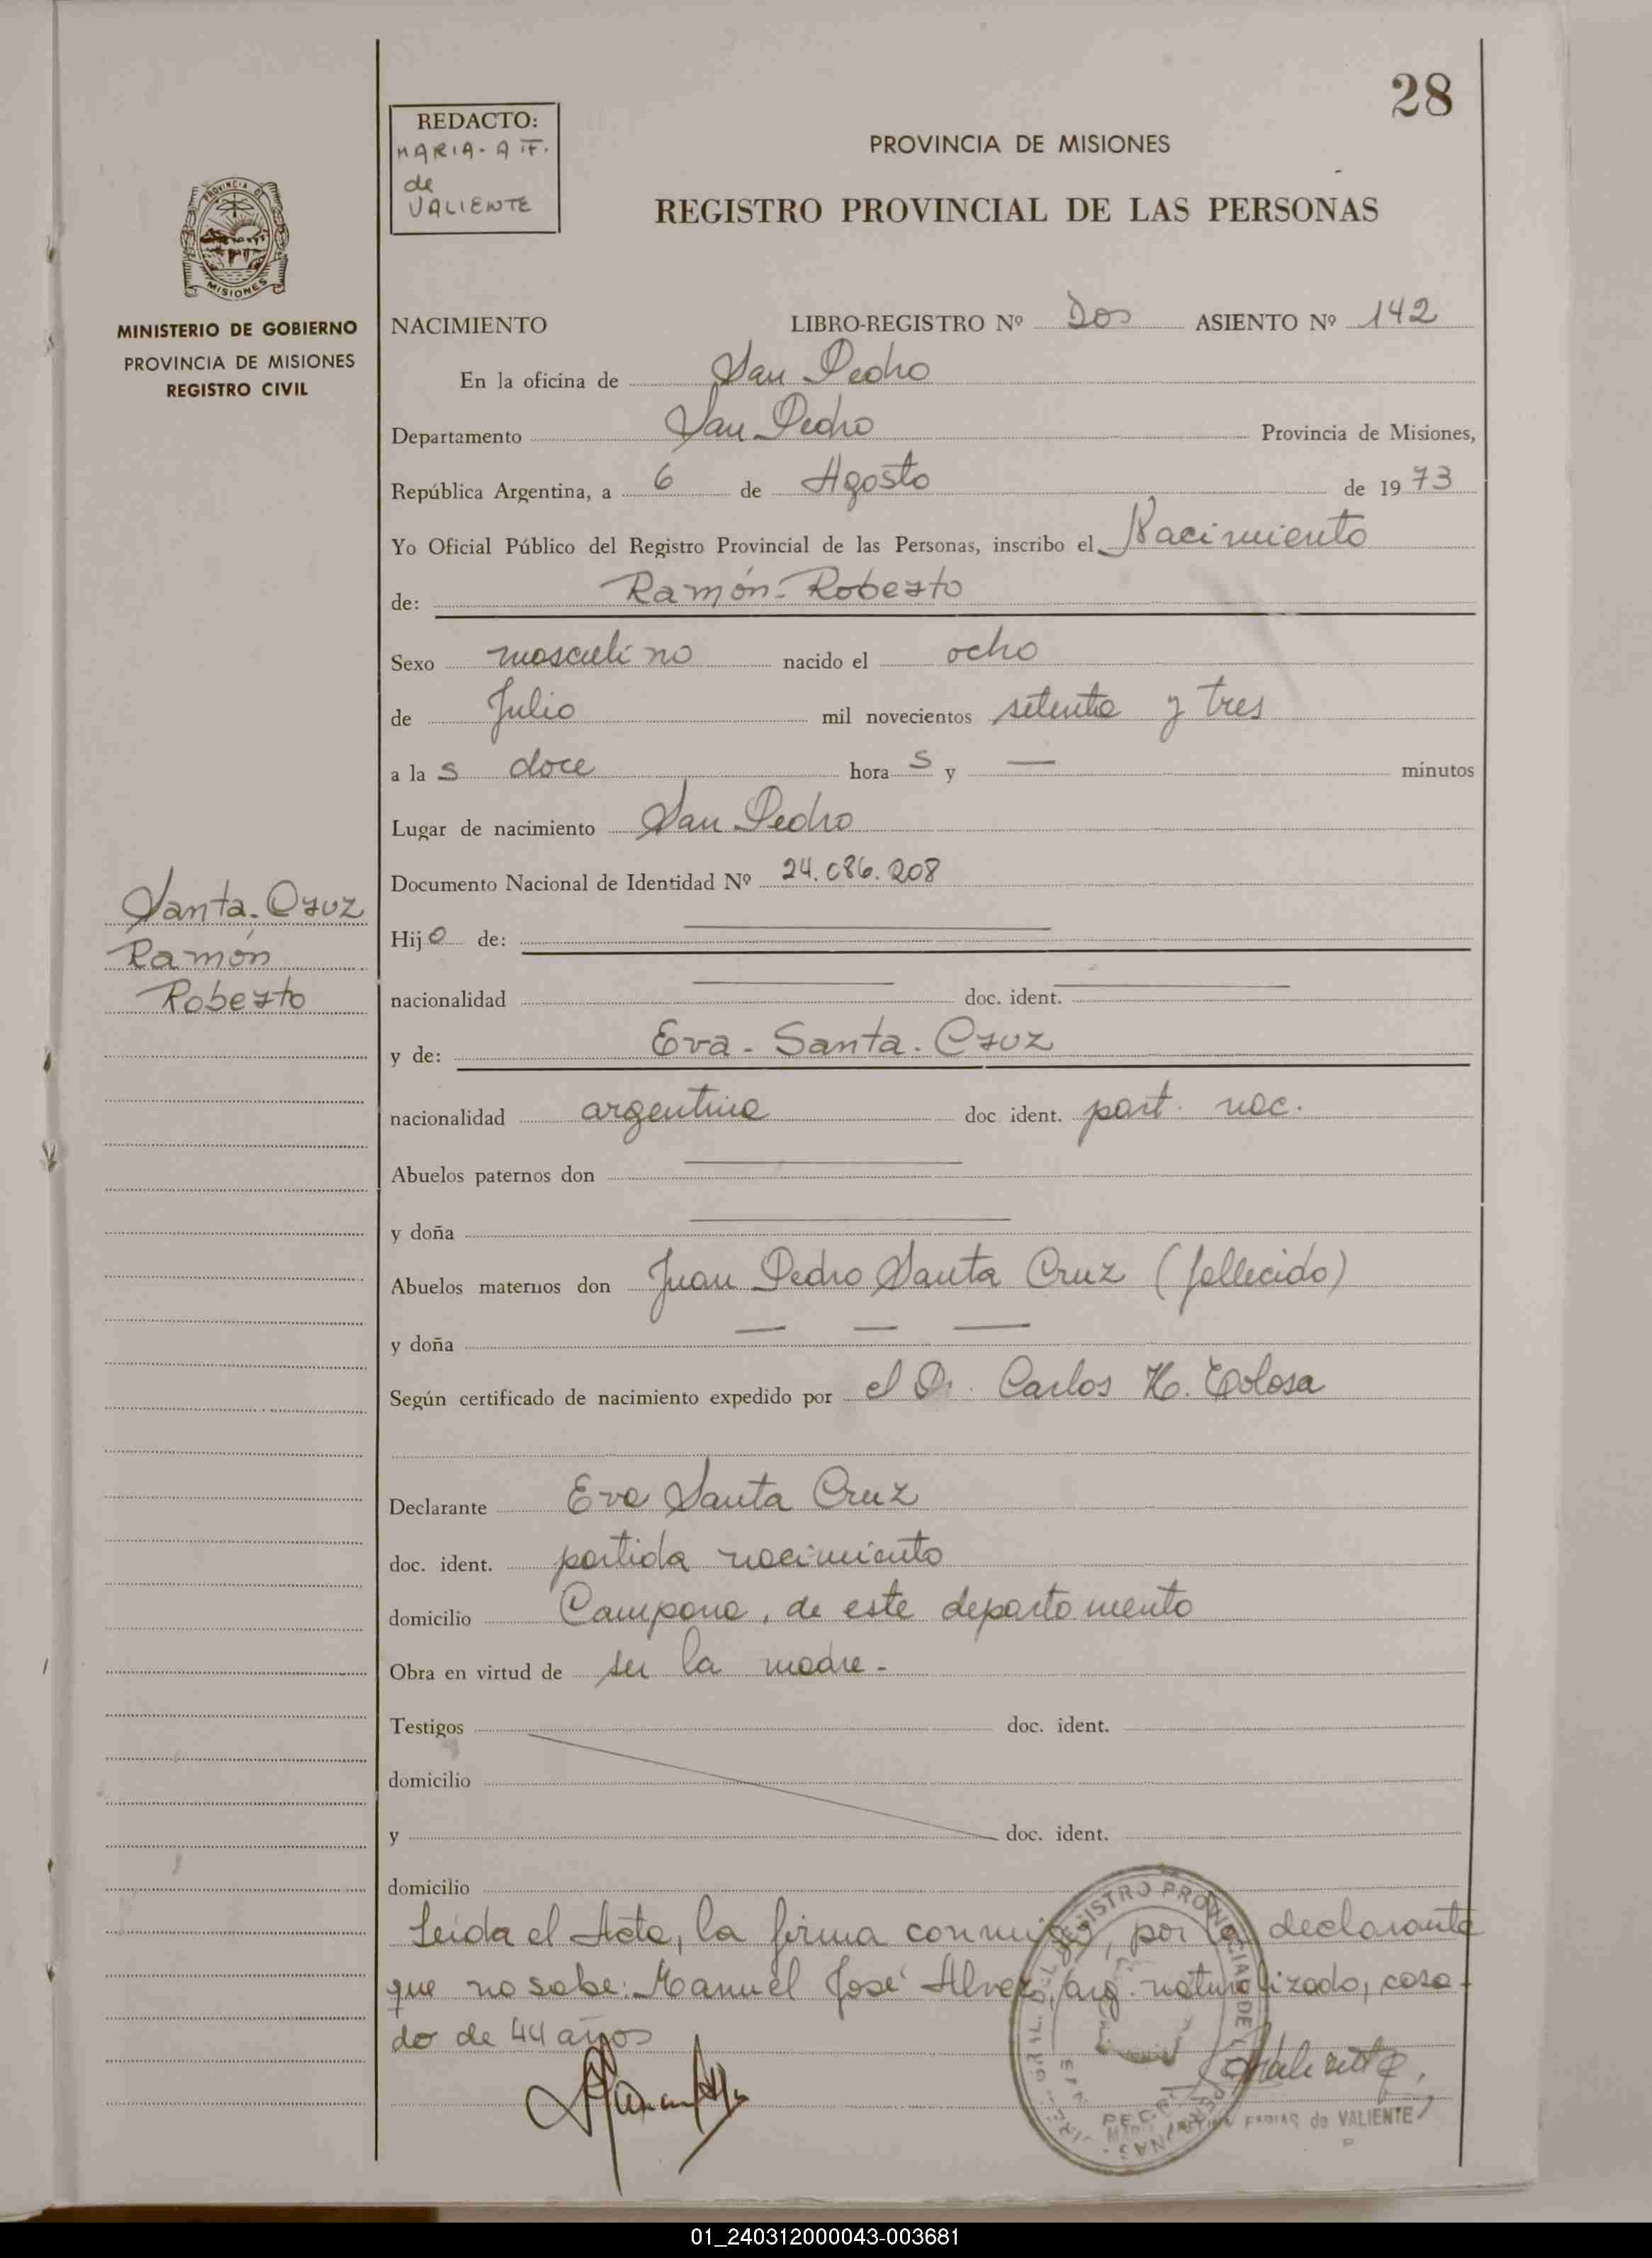 28
REDACTO:
MARIA-A F.
de
VALIENTE
PROVINCIA DE MISIONES
REGISTRO PROVINCIAL DE LAS PERSONAS
PROVINCIA DE
MISIONES
MINISTERIO DE GOBIERNO
PROVINCIA DE MISIONES
REGISTRO CIVIL
NACIMIENTO LIBRO-REGISTRO Nº Dos ASIENTO Nº 142
En la oficina de San Pedro
Departamento San Pedro Provincia de Misiones,
República Argentina, a 6 de Agosto de 1973
Yo Oficial Público del Registro Provincial de las Personas, inscribo el Nacimiento
de: Ramón-Roberto
Sexo masculino nacido el ocho
de Julio mil novecientos setenta y tres
a las doce horas y — minutos
Lugar de nacimiento San Pedro
Documento Nacional de Identidad Nº 24.086.208
Santa-Cruz
Ramón
Roberto
Hijo de: —
nacionalidad — doc. ident. —
y de: Eva-Santa-Cruz
nacionalidad argentina doc ident. part. nac.
Abuelos paternos don —
y doña —
Abuelos maternos don Juan Pedro Santa Cruz (fallecido)
y doña — — —
Según certificado de nacimiento expedido por el Dr. Carlos H. Tolosa
Declarante Eva Santa Cruz
doc. ident. partida nacimiento
domicilio Campana, de este departamento
Obra en virtud de ser la madre-
Testigos doc. ident.
domicilio
y doc. ident.
domicilio
Leida el Acta, la firma conmigo, por la declarante
que no sabe: Manuel José Alvez, arg. naturalizado, casa-
do de 44 años
FARIAS de VALIENTE
01_240312000043-003681